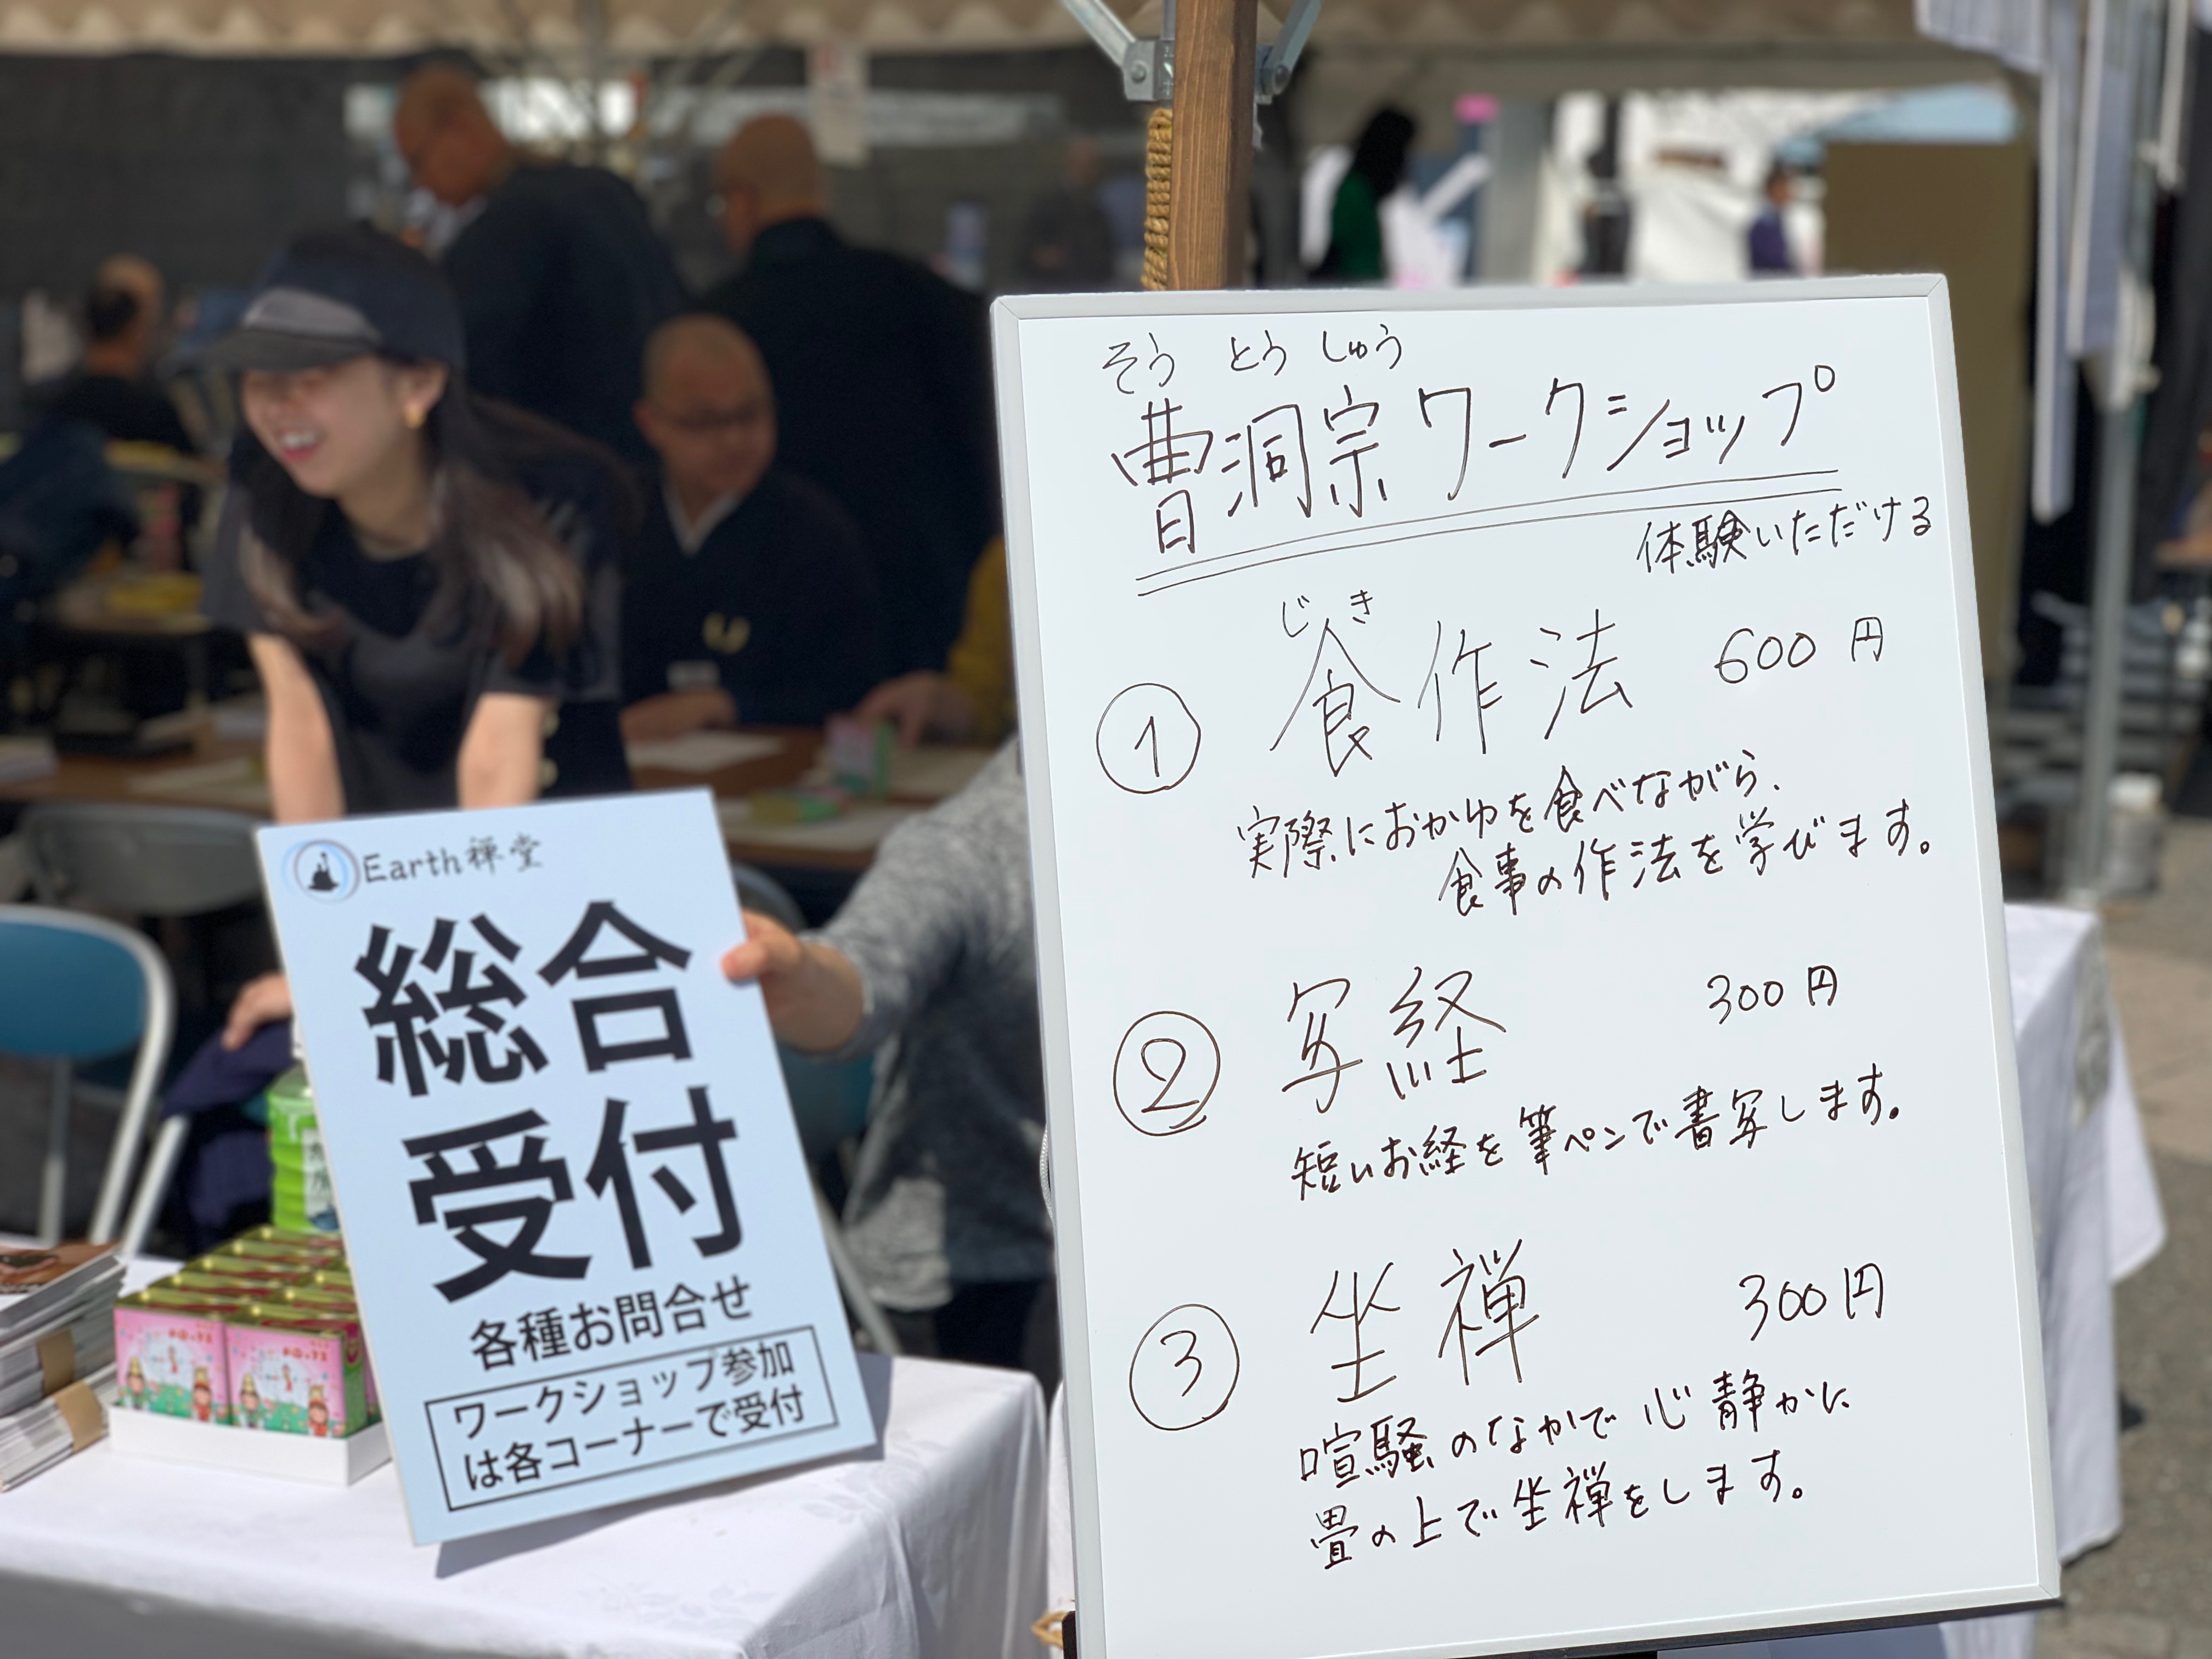 Earth禅堂
総合
受付
各種お問合せ
ワークショップ参加
は各コーナーで受付
そう とう しゅう
曹洞宗ワークショップ
体験いただける
じき
① 食作法 600円
実際におかゆを食べながら、
食事の作法を学びます。
② 写経 300円
短いお経を筆ペンで書写します。
③ 坐禅 300円
喧騒のなかで心静かに
畳の上で坐禅をします。